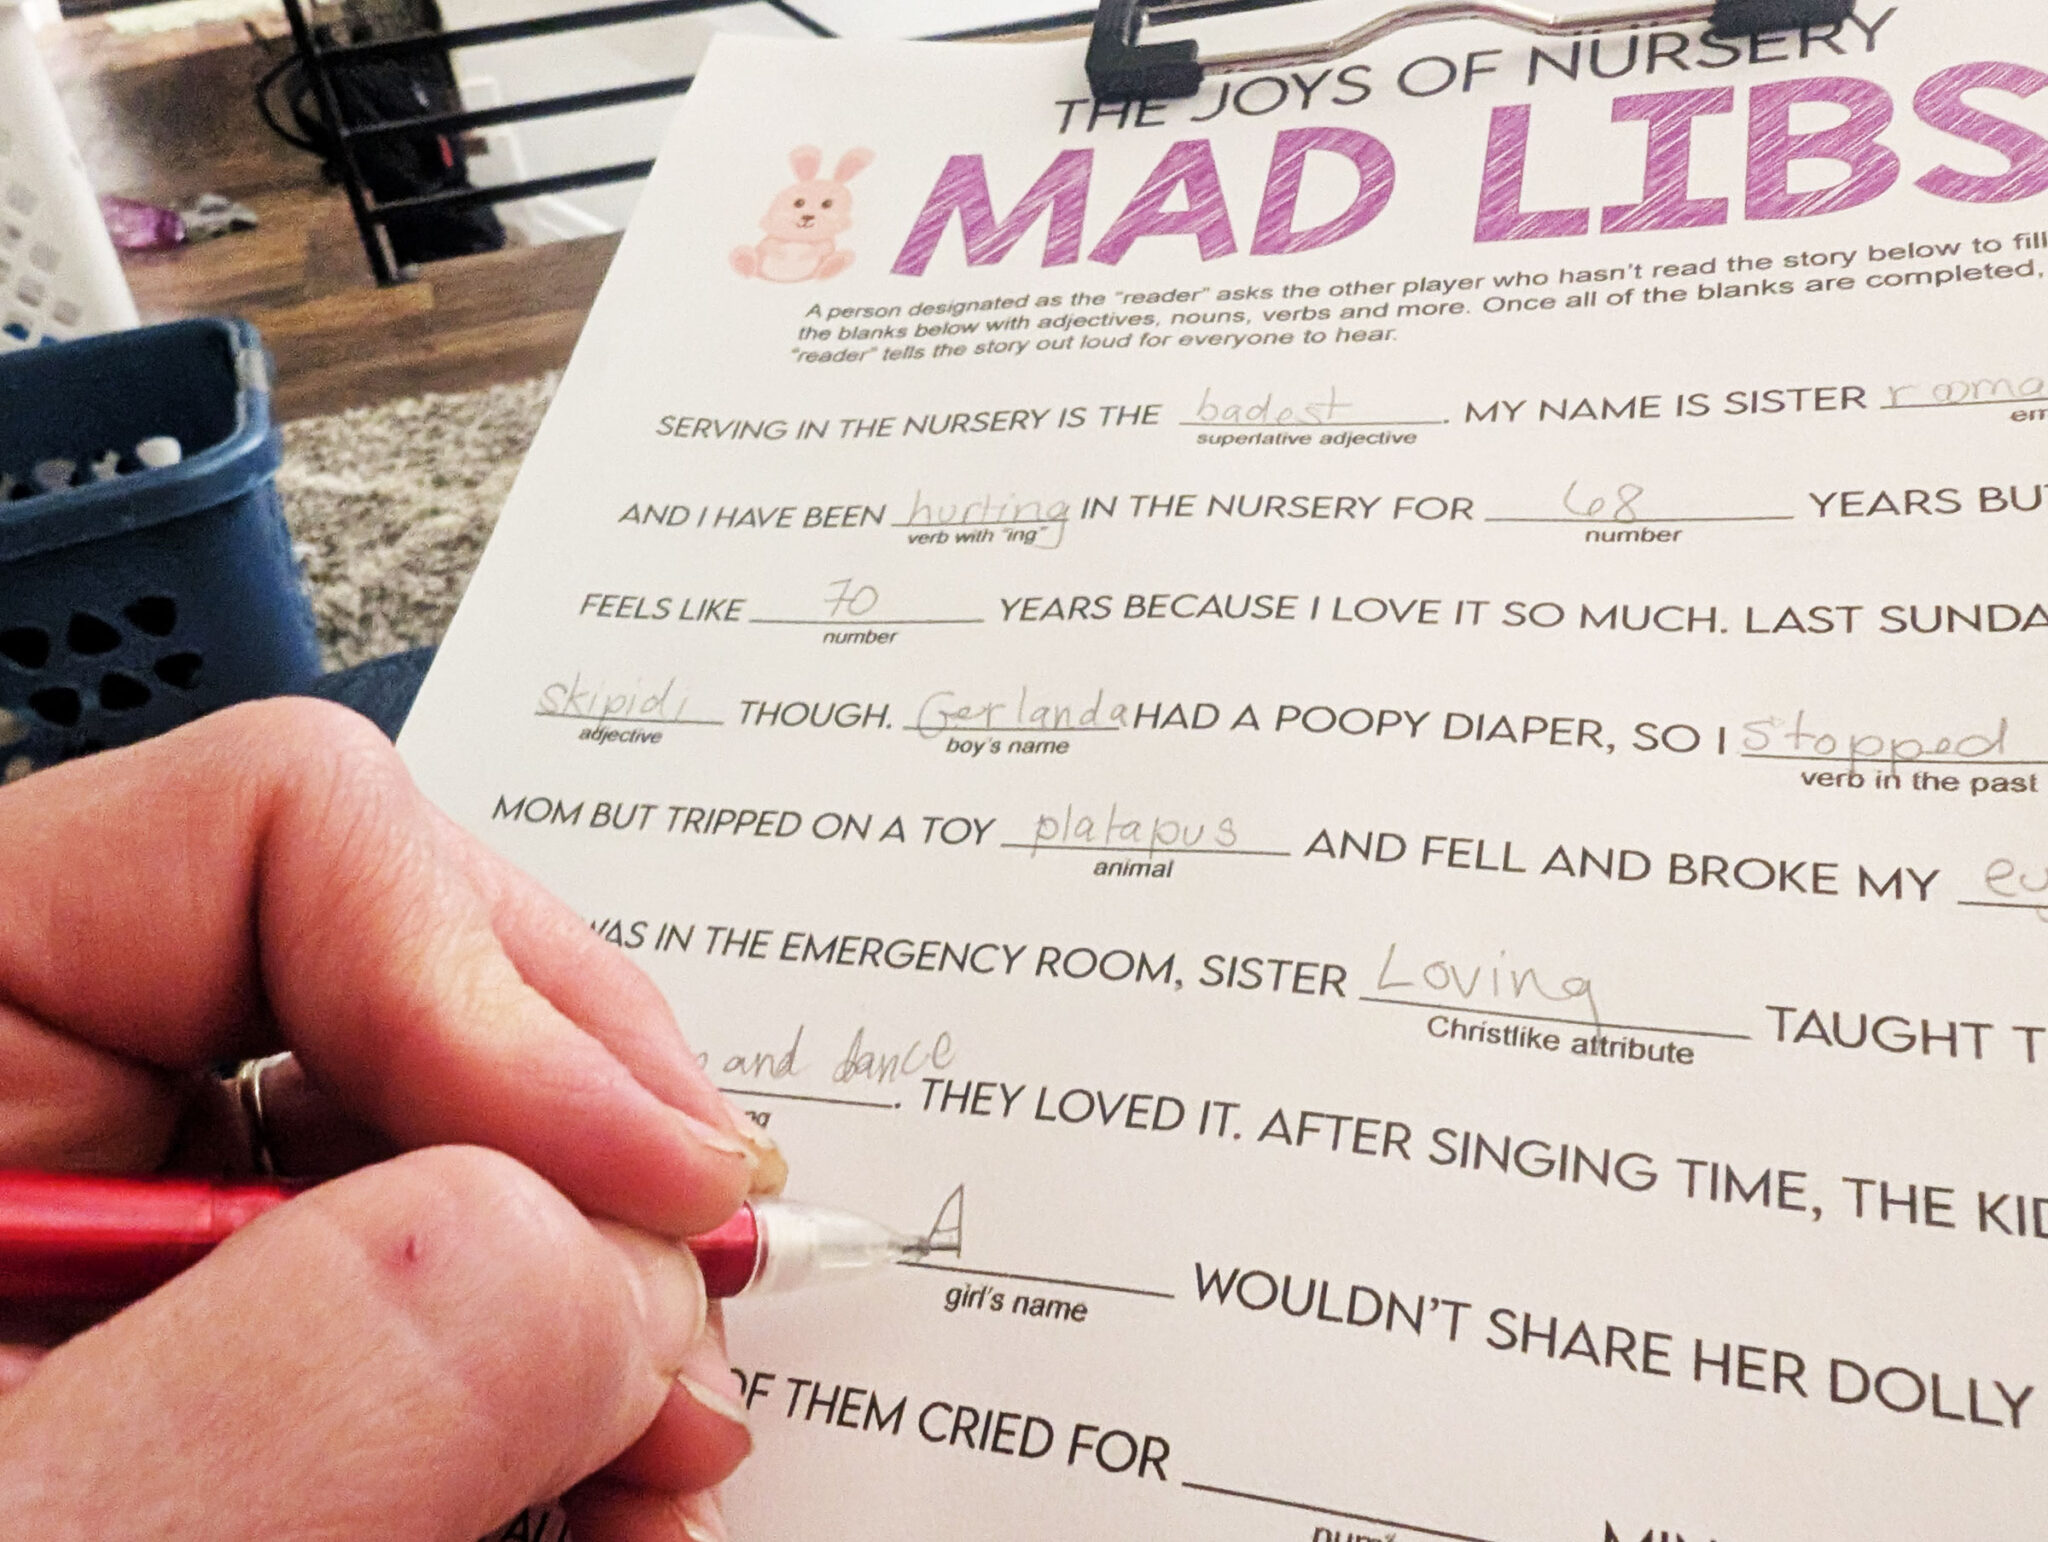 THE JOYS OF NURSERY
MAD LIBS
A person designated as the "reader" asks the other player who hasn't read the story below to fill
the blanks below with adjectives, nouns, verbs and more. Once all of the blanks are completed,
"reader" tells the story out loud for everyone to hear.
SERVING IN THE NURSERY IS THE badest. MY NAME IS SISTER
superlative adjective
AND I HAVE BEEN hurting IN THE NURSERY FOR 68 YEARS
verb with "ing" number
FEELS LIKE 70 YEARS BECAUSE I LOVE IT SO MUCH. LAST
number
skipidi THOUGH. Gerlanda HAD A POOPY DIAPER, SO I stopped
adjective boy's name verb in the past
MOM BUT TRIPPED ON A TOY platapus AND FELL AND BROKE MY
animal
WAS IN THE EMERGENCY ROOM, SISTER Loving TAUGHT
Christlike attribute
and dance. THEY LOVED IT. AFTER SINGING TIME, THE
A WOULDN'T SHARE HER DOLLY
girl's name
OF THEM CRIED FOR